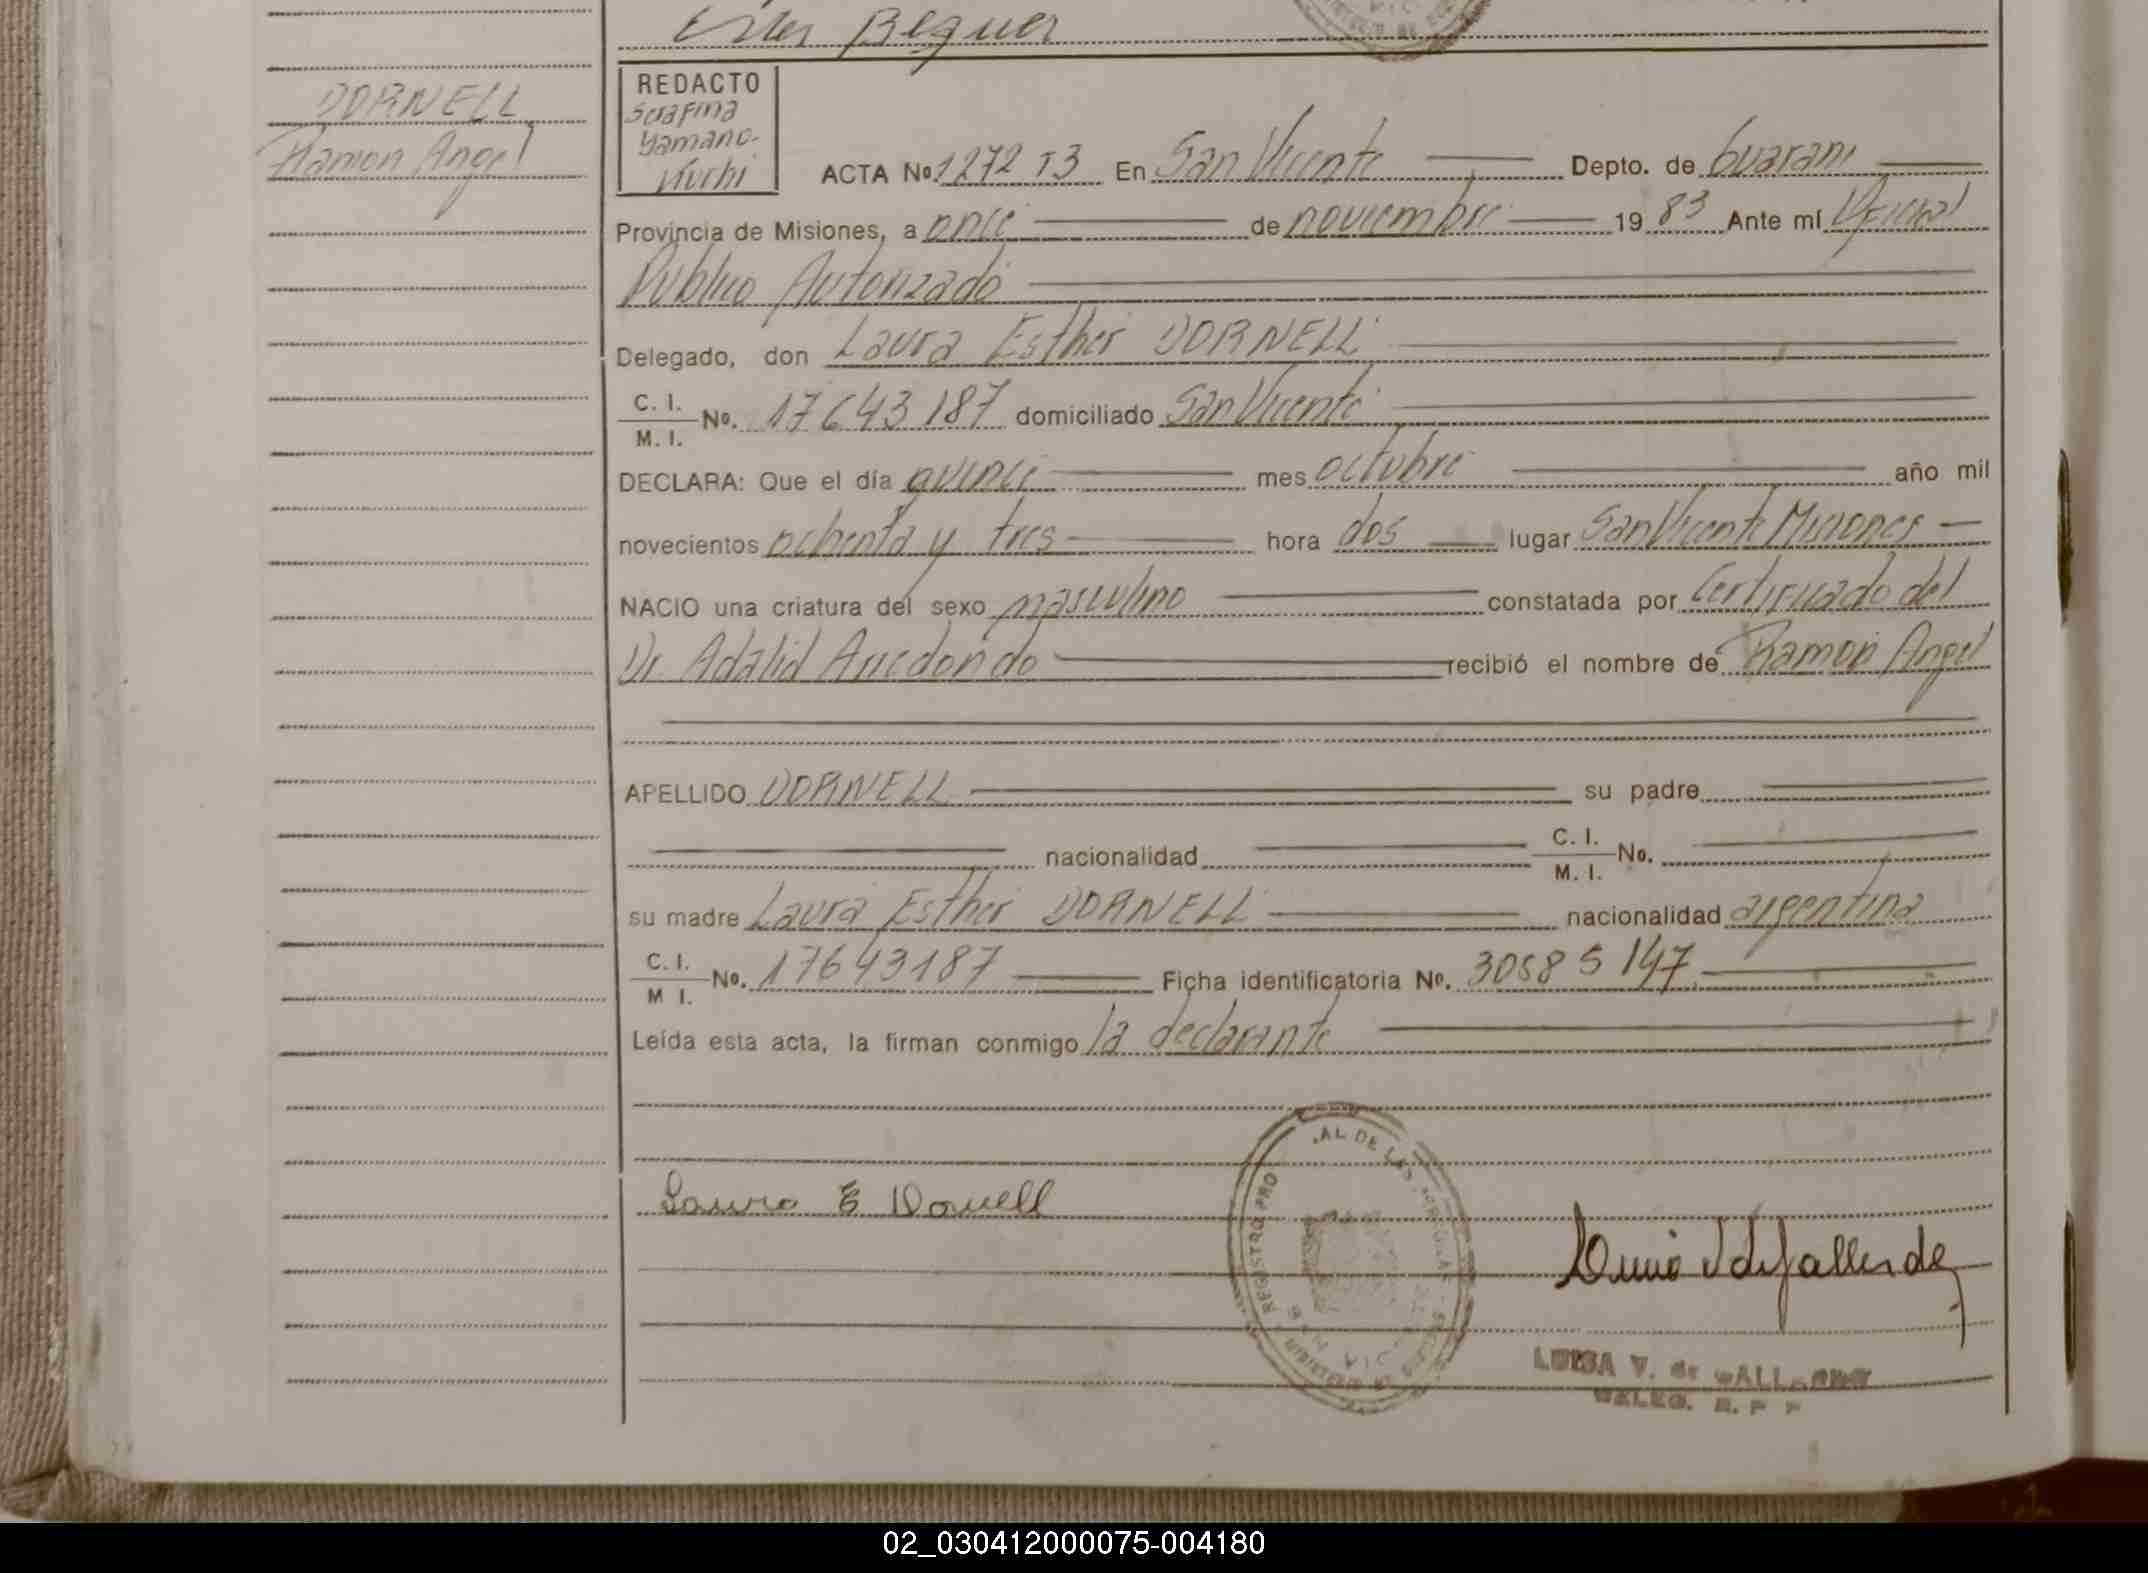 Ester Beguer
DORNELL
Ramon Angel
REDACTO
Serafina
Yamano-
Kuchi
ACTA No. 1272 T3 En San Vicente Depto. de Guarani
Provincia de Misiones, a once de noviembre 19 83 Ante mí Oficial
Publico Autorizado
Delegado, don Laura Esther DORNELL
C. I. / M. I. No. 17643187 domiciliado San Vicente
DECLARA: Que el día quince mes octubre año mil
novecientos ochenta y tres hora dos lugar San Vicente Misiones
NACIO una criatura del sexo masculino constatada por Certificado del
Dr. Adalid Arredondo recibió el nombre de Ramon Angel
APELLIDO DORNELL su padre
nacionalidad C. I. / M. I. No.
su madre Laura Esther DORNELL nacionalidad argentina
C. I. / M I. No. 17643187 Ficha identificatoria No. 30585147
Leída esta acta, la firman conmigo la declarante
Laura E Dornell
REGISTRO PRO AL DE LAS
LUISA V. de GALLARDO
02_030412000075-004180